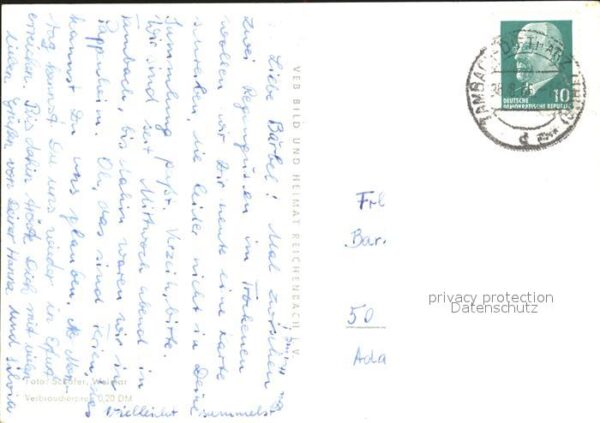 Liebe Bärbel! Mal zwischen
zwei Regengüssen im Trockenen
wollen wir Dir heute eine Karte
schreiben, die leider nicht in Deine
Sammlung paßt. Verzeih, bitte.
Wir sind seit Mittwoch abend in
Tambach, bis dahin waren wir in
Pappenheim. Oh, das sind Ferien, das
kannst Du uns glauben. Ab Mon-
tag kannst Du uns wieder in Erfurt
erreichen. Bis dahin tröste Dich mit vielen
lieben Grüßen von Deiner Hanna und Silvia
Vielleicht sammelst
VEB BILD UND HEIMAT REICHENBACH I. V.
Foto: Schäfer, Weimar
Verbraucherpreis 0,20 DM
DEUTSCHE
DEMOKRATISCHE REPUBLIK
10
TAMBACH-DIETHARZ
d
Frl
Bar.
50
Ada
privacy protection
Datenschutz